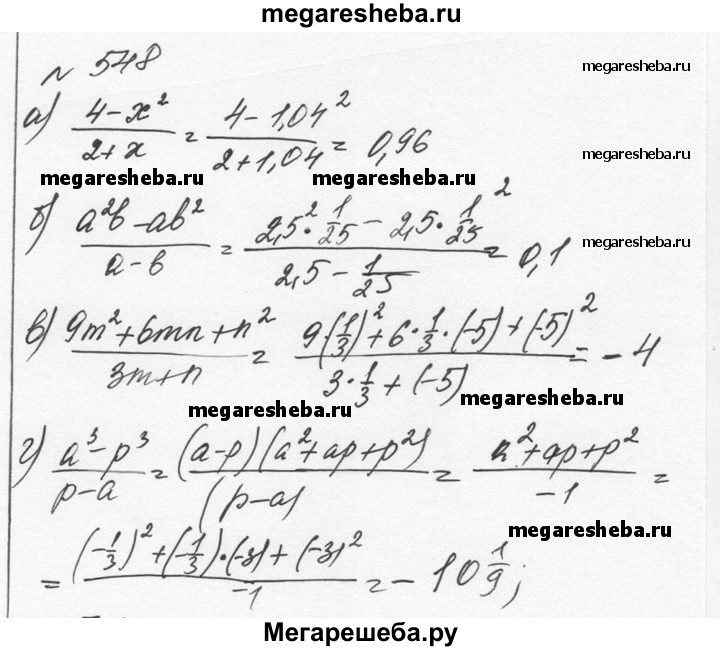 megaresheba.ru
№ 548
megaresheba.ru
а) (4-x²)/(2+x) = (4-1,04²)/(2+1,04) = 0,96
megaresheba.ru
megaresheba.ru megaresheba.ru
б) (a²b-ab²)/(a-b) = (2,5²·1/25 - 2,5·1/25²)/(2,5-1/25) = 0,1
megaresheba.ru
в) (9m²+6mn+n²)/(3m+n) = (9(1/3)²+6·1/3·(-5)+(-5)²)/(3·1/3+(-5)) = -4
megaresheba.ru
megaresheba.ru
г) (a³-p³)/(p-a) = (a-p)(a²+ap+p²)/(p-a) = (a²+ap+p²)/-1 =
megaresheba.ru
= ((-1/3)²+(-1/3)·(-3)+(-3)²)/-1 = -10 1/9;
Мегарешеба.ру